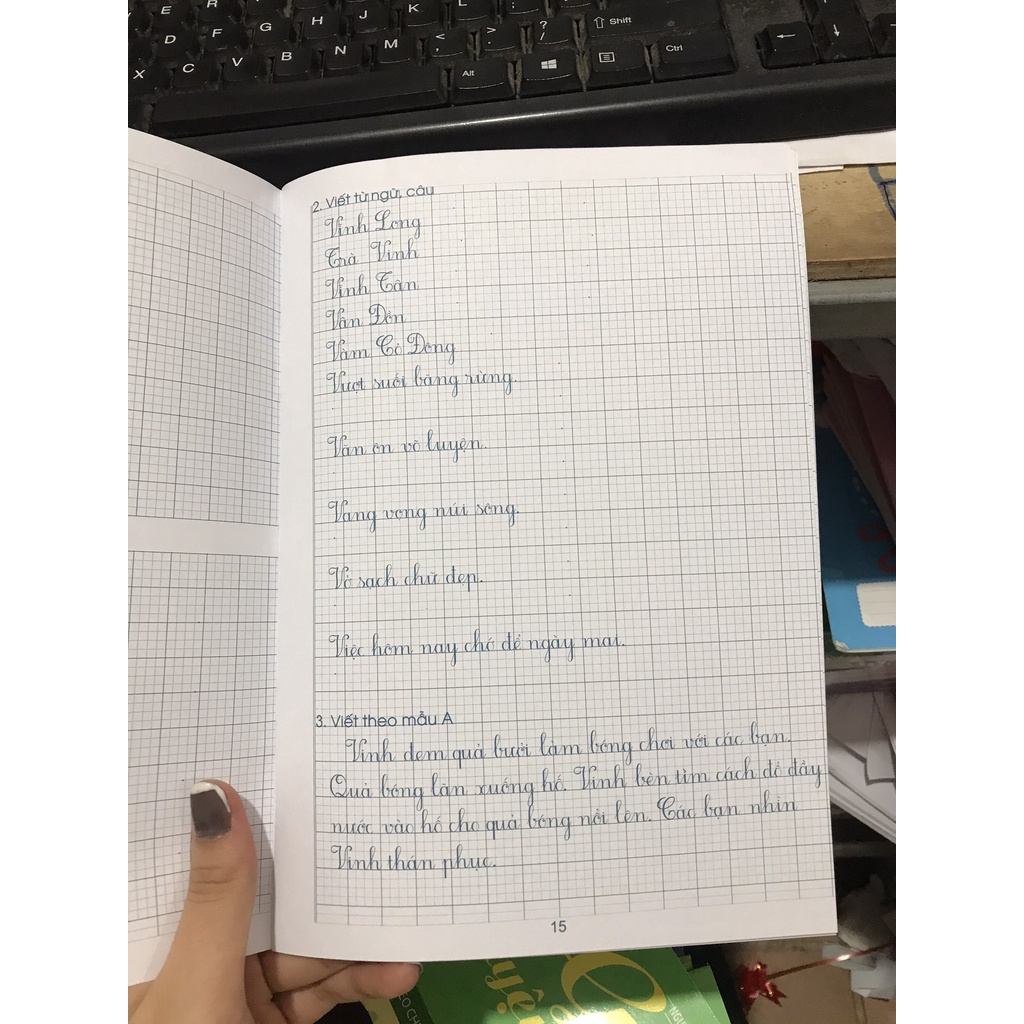 E R H J K L
D F G < , > . ? / Shift
X C V B N M Alt Ctrl
2. Viết từ ngữ, câu
Vĩnh Long
Trà Vinh
Vĩnh Tân
Vân Đồn
Vàm Cỏ Đông
Vượt suối băng rừng.
Văn ôn võ luyện.
Vang vọng núi sông.
Vở sạch chữ đẹp.
Việc hôm nay chớ để ngày mai.
3. Viết theo mẫu A
Vinh đem quả bưởi làm bóng chơi với các bạn.
Quả bóng lăn xuống hố. Vinh bèn tìm cách đổ đầy
nước vào hố cho quả bóng nổi lên. Các bạn nhìn
Vinh thán phục.
15